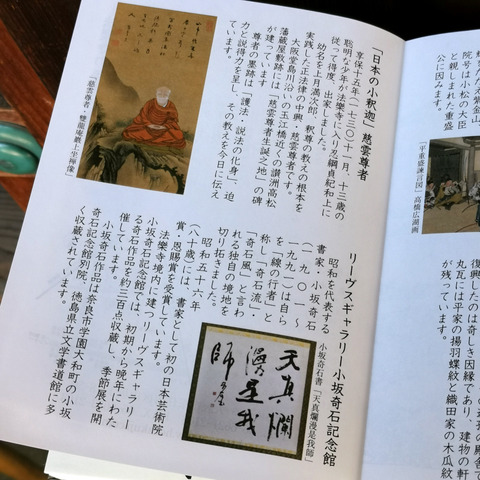 院号は小松の大臣
と親しまれた重盛
公に因みます。
「平重盛諫言図」高橋広湖画
復興したのは奇しき因縁であり、建物の軒
丸瓦には平家の揚羽蝶紋と織田家の木瓜紋
が残っています。
「日本の小釈迦」慈雲尊者
享保十五年(一七三〇)十一月、十三歳の
聡明な少年が法樂寺に入り忍綱貞紀和上に
従って得度、出家しました。
幼名を上月満次郎、釈尊の教えの根本を
実践した正法律の中興・慈雲尊者です。
大阪堂島川沿いの玉江橋近くの讃洲高松
藩蔵屋敷跡には「慈雲尊者生誕之地」の碑
が建っています。
尊者の墨跡は「護法・説法の化身」、迫
力と説得力を呈し、その教えを今日に伝え
ています。
「慈雲尊者・雙龍庵巌上坐禅像」
リーヴスギャラリー小坂奇石記念館
昭和を代表する
書家・小坂奇石
(一九〇一〜
一九九一)は自ら
を「線の行者」と
称し「奇石流」・
「奇石風」と言わ
れる独自の境地を
切り拓きました。
昭和五十六年
(八十歳)には、書家として初の日本芸術院
賞・恩賜賞を受賞しています。
法樂寺境内に建つリーヴスギャラリー
小坂奇石記念館では、初期から晩年にわた
る奇石作品を約三百点収蔵し、季節展を開
催しています。
小坂奇石作品は奈良市学園大和町の小坂
奇石記念館別院、徳島県立文学書道館に多
く収蔵されています。
小坂奇石書「天真爛漫是我師」
天真爛
漫是我
師